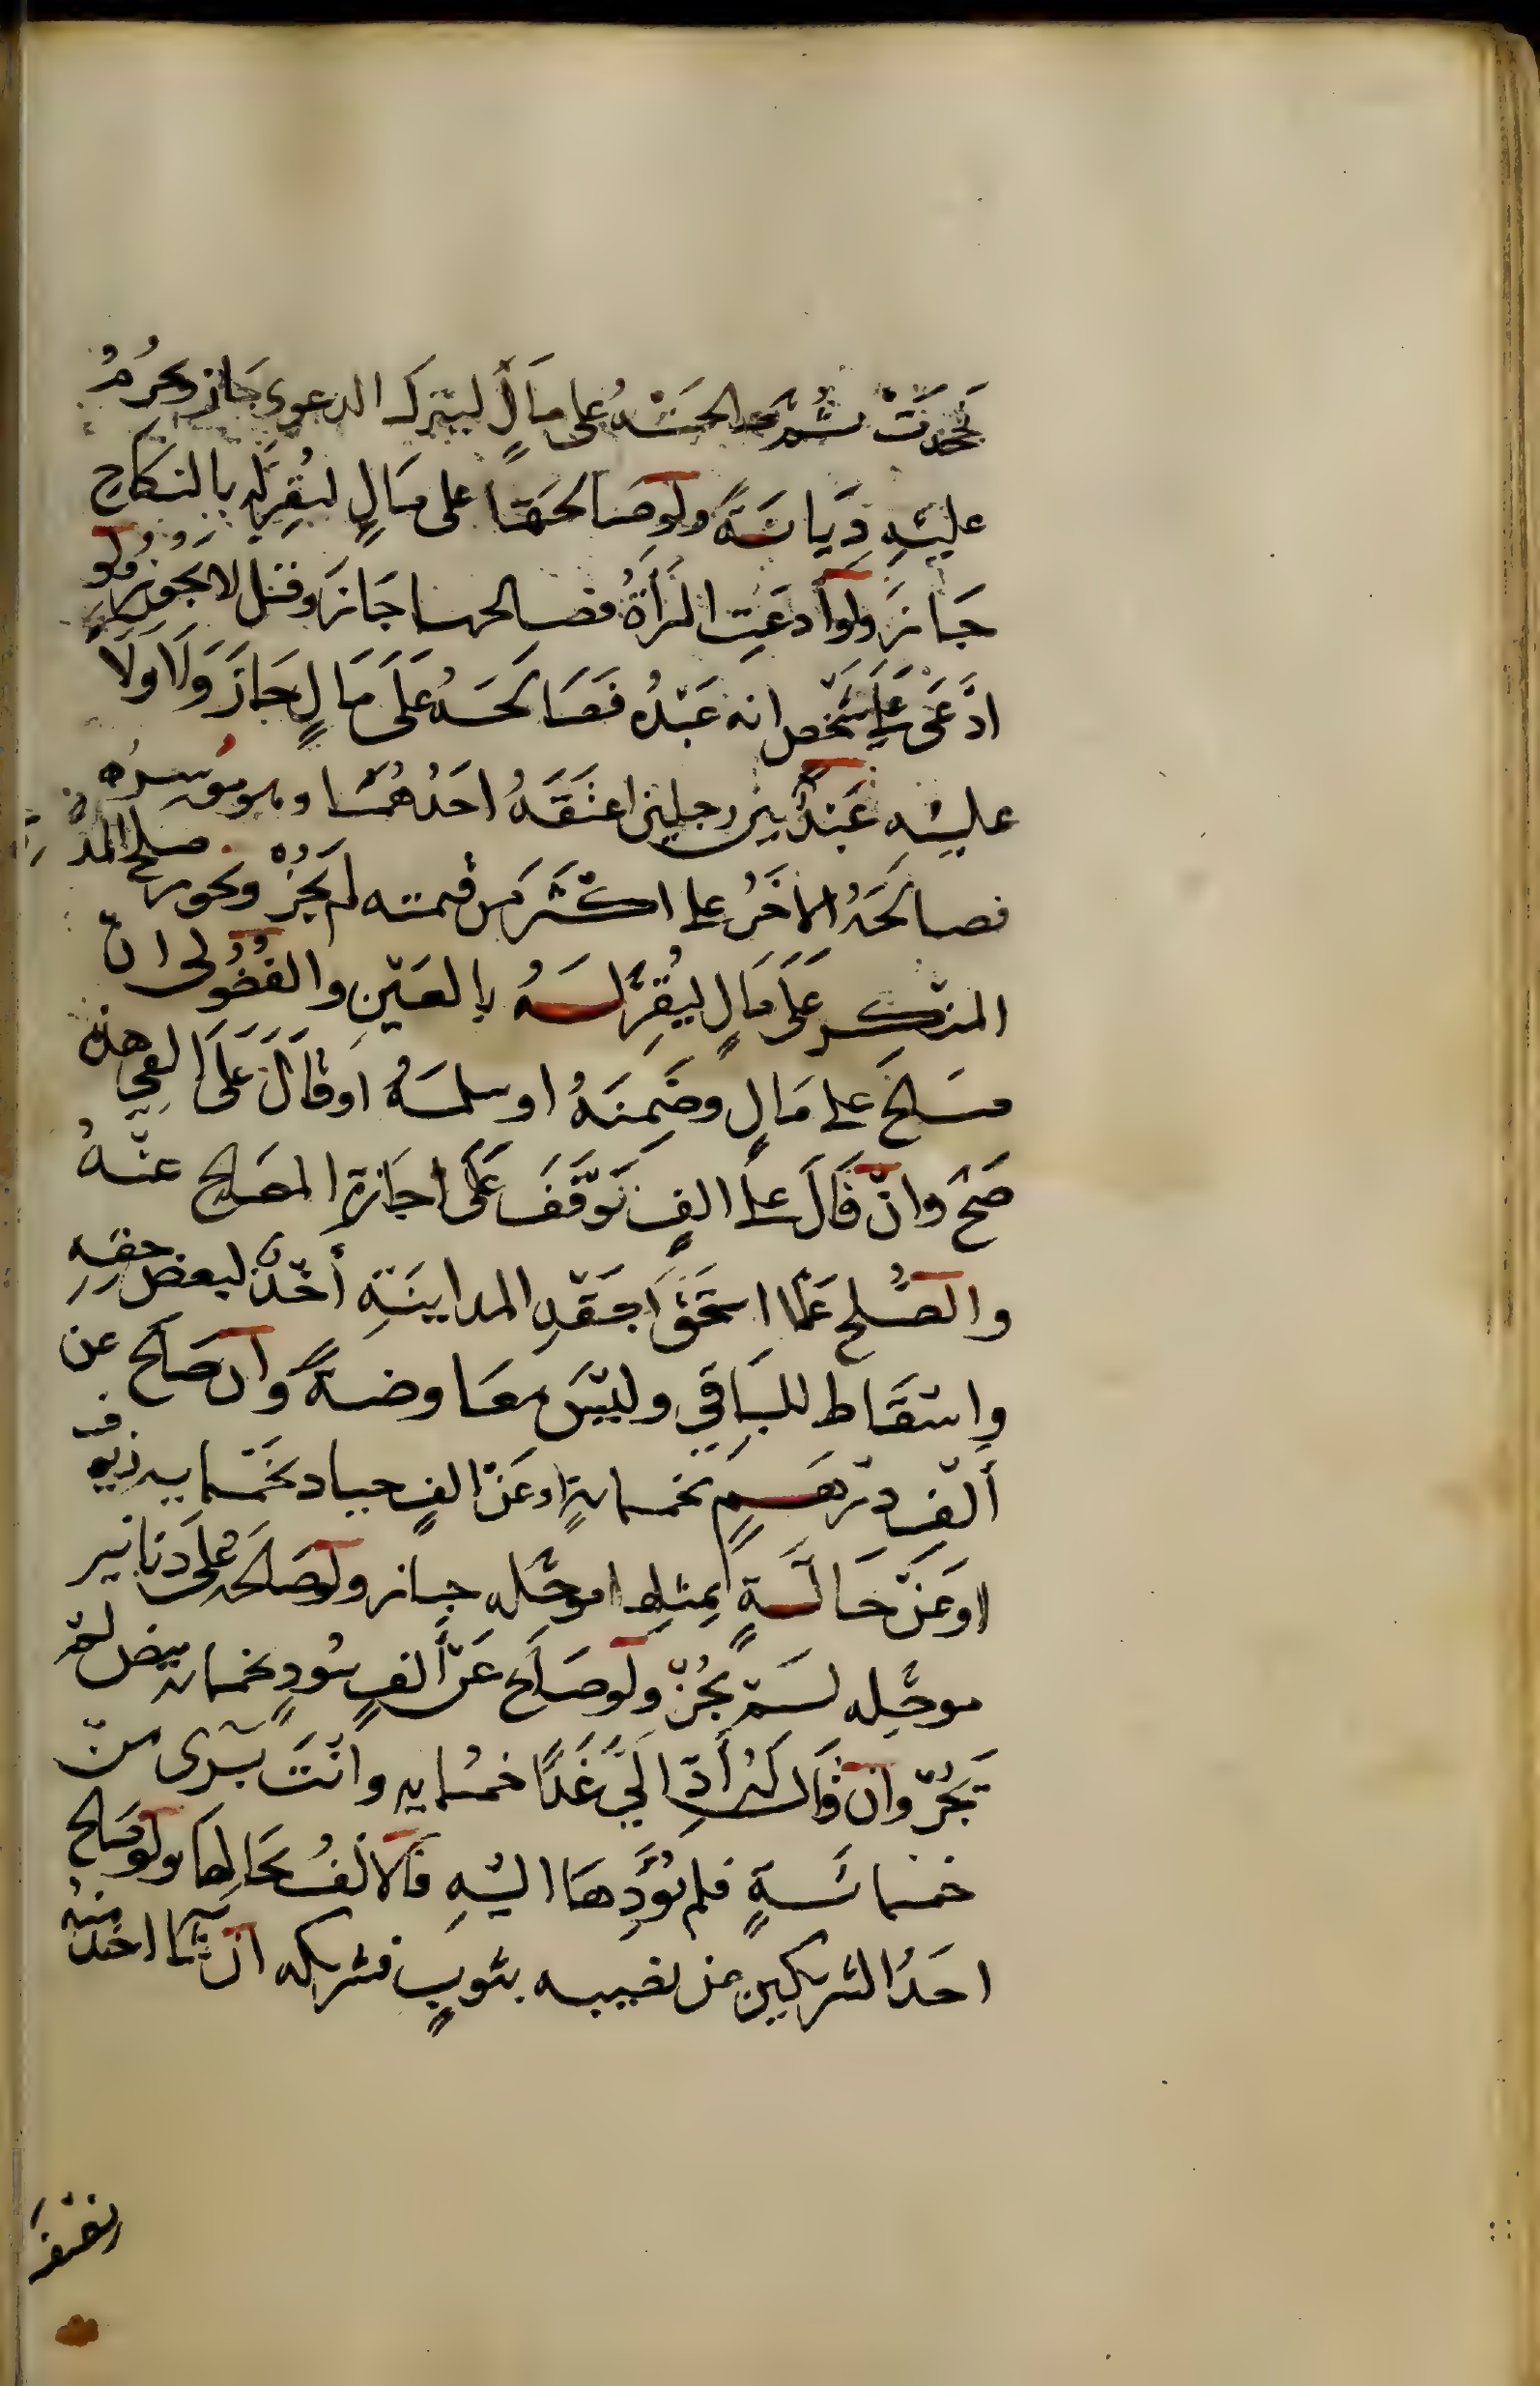 فجحدت ثم صالحته على مال ليترك الدعوى جاز ويحرم
عليه دِيانةً ولو صالحها على مالٍ ليُقِرّ له بالنكاح
جازَ ولو ادعتِ المرأةُ فصالحها جازَ وقيل لا يجوزُ ولو
ادَّعَى عَلى شخص انه عَبْدُه فَصَالحَه عَلَى مَالٍ جَازَ وَلَا وَلَا
عليه عَبْدٌ بين رجلين اعتَقَهُ احَدُهُمَا وهو مُوسِرٌ
فصالحَهُ الآخَرُ على اكثَرَ من قيمته لم يَجُزْ ويجوز صلح المدّ
المنكِر عَلَى مَالٍ لِيُقِرَّ لَهُ بالعَيْنِ والفُضُولى ان
صَالحَ على مَالٍ وضَمِنَهُ او سلمَهُ او قالَ عَلَى الفي هذه
صَحَّ وانْ قَالَ على الفٍ تَوَقَّفَ عَلَى اجَازةِ المصَالح عنْهُ
والصُّلح عَمَّا استَحَقَّ بعَقْدِ المداينَةِ أخْذٌ لبعض حقِهِ
واسْقَاط للبَاقِي وليْسَ معَاوضةً وان صَالحَ عن
ألْفِ دِرْهَمٍ بخمسمايةٍ او عَنْ الفٍ جياد بخمسمايه زيوف
او عَنْ حَالَّةٍ بمثلها موجّله جاز ولو صَالحَه عَلَى دنانير
موجّله لَمْ يجُزْ ولو صَالحَ عَنْ ألفٍ سُودٍ بخمسمايه بيض لَمْ
يَجُزْ وان قَال لَهُ أدِّ إلَيَّ غَدًا خمسمايه وانْتَ بَرِى منْ
خمسمائةٍ فلم يُؤَدِّهَا اليْهِ فالالفُ بحَالِهَا ولو صَالح
احَدُ الشريكين عن نصيبه بثوبٍ فشريكه ان شَا اخَذَ مِنْهُ
نِصْفَهُ